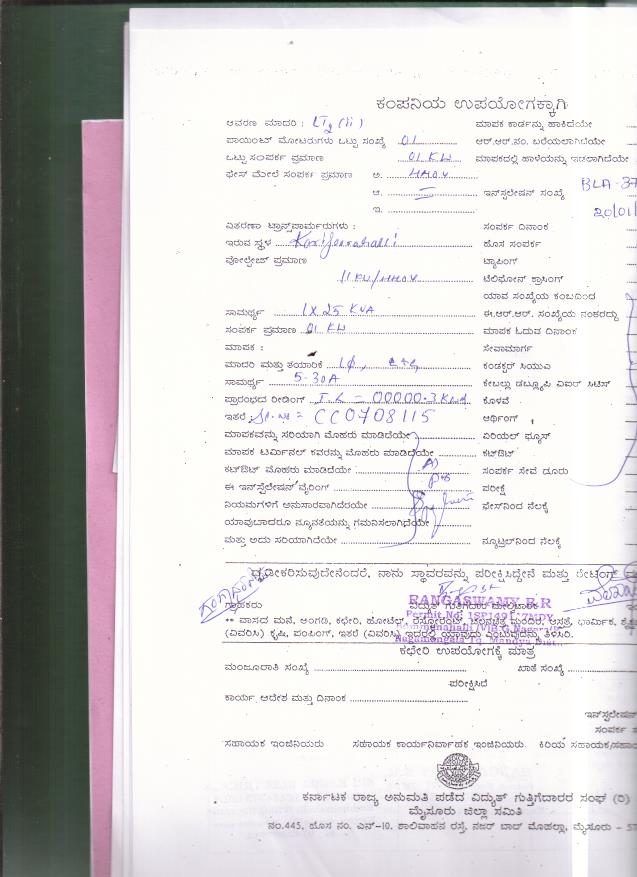 ಕಂಪನಿಯ ಉಪಯೋಗಕ್ಕಾಗಿ
ಆವರಣ ಮಾದರಿ : LT2 (ii) ಮಾಪಕ ಕಾರ್ಡನ್ನು ಹಾಕಿದೆಯೇ
ಪಾಯಿಂಟ್ ಮೋಟರುಗಳು ಒಟ್ಟು ಸಂಖ್ಯೆ 01 ಆರ್.ಆರ್.ನಂ. ಬರೆಯಲಾಗಿದೆಯೇ
ಒಟ್ಟು ಸಂಪರ್ಕ ಪ್ರಮಾಣ 01 KW ಮಾಪಕದಲ್ಲಿ ಹಾಳೆಯನ್ನು ಇಡಲಾಗಿದೆಯೇ
ಫೇಸ್ ಮೇಲೆ ಸಂಪರ್ಕ ಪ್ರಮಾಣ ಅ.
ಆ. ಇನ್‌ಸ್ಟಲೇಷನ್ ಸಂಖ್ಯೆ BLA-37
ಇ. 20/01/
ವಿತರಣಾ ಟ್ರಾನ್ಸ್‌ಪಾರ್ಮರುಗಳು : ಸಂಪರ್ಕ ದಿನಾಂಕ
ಇರುವ ಸ್ಥಳ ಹೊಸ ಸಂಪರ್ಕ
ವೋಲ್ಟೇಜ್ ಪ್ರಮಾಣ ಟ್ಯಾಪಿಂಗ್
11 KV/ ಟೆಲಿಫೋನ್ ಕ್ರಾಸಿಂಗ್
ಯಾವ ಸಂಖ್ಯೆಯ ಕಂಬದಿಂದ
ಸಾಮರ್ಥ್ಯ 1 X 25 KVA ಈ.ಆರ್.ಆರ್. ಸಂಖ್ಯೆಯ ನಂತರದ್ದು
ಸಂಪರ್ಕ ಪ್ರಮಾಣ 01 KW ಮಾಪಕ ಓದುವ ದಿನಾಂಕ
ಮಾಪಕ : ಸೇವಾಮಾರ್ಗ
ಮಾದರಿ ಮತ್ತು ತಯಾರಿಕೆ 1Φ, ಕಂಡಕ್ಟರ್ ಸಿಯುಎ
ಸಾಮರ್ಥ್ಯ 5-30A ಕೇಬಲ್ಲು ಡಬ್ಲ್ಯೂಪಿ ಏಐರ್ ಸಿಟಿಸ್
ಪ್ರಾರಂಭದ ರೀಡಿಂಗ್ I.R = 00000.3 ಕೊಳವೆ
ಇತರೆ Sl.No = CC0708115 ಅರ್ಥಿಂಗ್
ಮಾಪಕವನ್ನು ಸರಿಯಾಗಿ ಮೊಹರು ಮಾಡಿದೆಯೇ ಏರಿಯಲ್ ಫ್ಯೂಸ್
ಮಾಪಕ ಟರ್ಮಿನಲ್ ಕವರನ್ನು ಮೊಹರು ಮಾಡಿದೆಯೇ ಕಟ್‌ಔಟ್
ಕಟ್‌ಔಟ್ ಮೊಹರು ಮಾಡಿದೆಯೇ ಸಂಪರ್ಕ ಸೇವ ದೂರು
ಈ ಇನ್‌ಸ್ಟಲೇಷನ್ ವೈರಿಂಗ್ ಪರೀಕ್ಷೆ
ನಿಯಮಗಳಿಗೆ ಅನುಸಾರವಾಗಿದೆರೆಯೇ ಫೇಸ್‌ನಿಂದ ನೆಲಕ್ಕೆ
ಯಾವುದಾದರೂ ನ್ಯೂನತೆಯನ್ನು ಗಮನಿಸಲಾಗಿದೆಯೇ
ಮತ್ತು ಅದು ಸರಿಯಾಗಿದೆಯೇ ನ್ಯೂಟ್ರಲ್‌ನಿಂದ ನೆಲಕ್ಕೆ
ದೃಢೀಕರಿಸುವುದೇನೆಂದರೆ, ನಾನು ಸ್ಥಾವರವನ್ನು ಪರೀಕ್ಷಿಸಿದ್ದೇನೆ ಮತ್ತು ರೇಟಿಂಗ್
ಗ್ರಾಹಕರು ವಿದ್ಯುತ್ ಗುತ್ತಿಗೆದಾರ
RANGASWAMY B.R
Permit No:
Nagamangala Tq. Mandya Dist.
** ವಾಸದ ಮನೆ, ಅಂಗಡಿ, ಕಛೇರಿ, ಹೋಟೆಲ್, ರೆಸ್ಟೋರೆಂಟ್, ಚಲನಚಿತ್ರ ಮಂದಿರ, ಆಸ್ಪತ್ರೆ, ಧಾರ್ಮಿಕ,
(ವಿವರಿಸಿ) ಕೃಷಿ, ಪಂಪಿಂಗ್, ಇತರೆ (ವಿವರಿಸಿ) ಇದರಲ್ಲಿ ಯಾವುದು ಎಂಬುದನ್ನು ತಿಳಿಸಿರಿ.
ಕಛೇರಿ ಉಪಯೋಗಕ್ಕೆ ಮಾತ್ರ
ಮಂಜೂರಾತಿ ಸಂಖ್ಯೆ ಖಾತೆ ಸಂಖ್ಯೆ
ಪರೀಕ್ಷಿಸಿದೆ
ಕಾರ್ಯ ಆದೇಶ ಮತ್ತು ದಿನಾಂಕ
ಇನ್‌ಸ್ಟಲೇಷನ್
ಸಂಪರ್ಕ
ಸಹಾಯಕ ಇಂಜಿನಿಯರು ಸಹಾಯಕ ಕಾರ್ಯನಿರ್ವಾಹಕ ಇಂಜಿನಿಯರು. ಕಿರಿಯ ಸಹಾಯಕ/ಸಹಾಯ
ಕರ್ನಾಟಕ ರಾಜ್ಯ ಅನುಮತಿ ಪಡೆದ ವಿದ್ಯುತ್ ಗುತ್ತಿಗೆದಾರರ ಸಂಘ (ರಿ)
ಮೈಸೂರು ಜಿಲ್ಲಾ ಸಮಿತಿ
ನಂ.445, ಹೊಸ ನಂ. ಎನ್-10. ಶಾಲಿವಾಹನ ರಸ್ತೆ, ನಜರ್ ಬಾದ್ ಮೊಹಲ್ಲಾ, ಮೈಸೂರು - 57